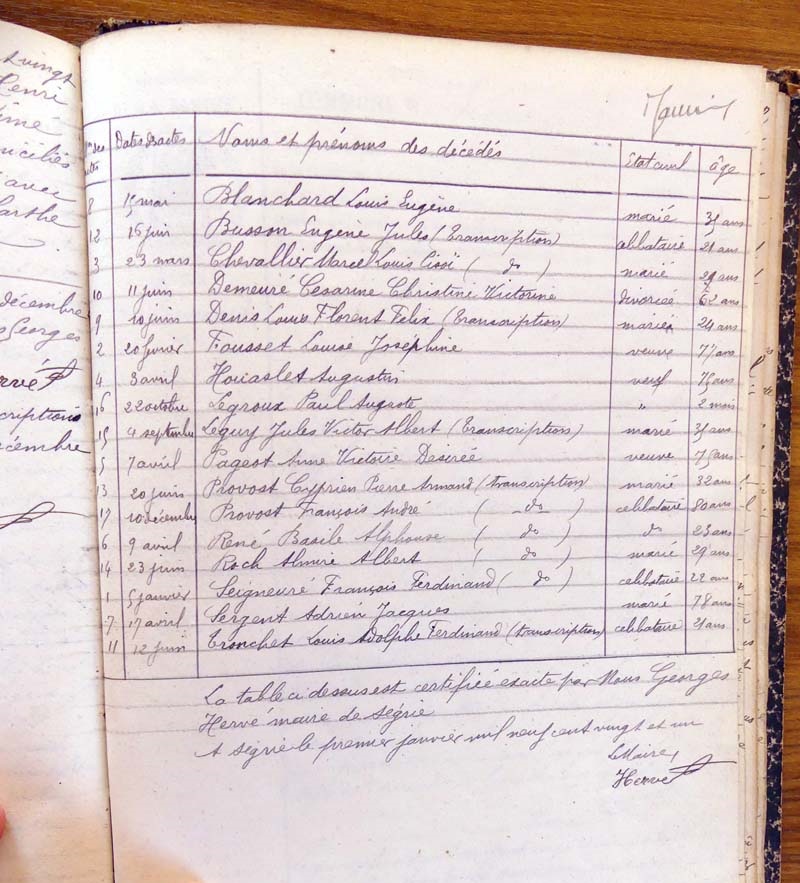 t vingt
Henri
cilies
avec
arthe
décembre
Georges
rvé
criptions
cembre
des Dates d'actes Noms et prénoms des décédés Etat civil âge
8 15 mai Blanchard Louis Eugène marié 35 ans
12 16 juin Busson Eugène Jules (Transcription) célibataire 21 ans
3 23 mars Chevallier Marcel Louis ( do ) marié 29 ans
10 11 juin Demeuré Cesarine Christine Victorine divorcée 62 ans
9 10 juin Denis Louis Florent Felix (Transcription) marié 24 ans
2 20 février Fousset Louise Josephine veuve 77 ans
4 3 avril Houaslet Augustin veuf 75 ans
16 22 octobre Legroux Paul Auguste " 2 mois
15 4 septembre Leguy Jules Victor Albert (Transcription) marié 35 ans
5 7 avril Pagest Anne Victoire Desirée veuve 75 ans
13 20 juin Provost Cyprien Pierre Armand (transcription) marié 32 ans
17 10 décembre Provost François André ( do ) célibataire 80 ans
6 9 avril René Basile Alphonse ( do ) do 23 ans
14 23 juin Roch Almire Albert ( do ) marié 29 ans
1 5 janvier Seigneuré François Ferdinand ( do ) célibataire 22 ans
7 17 avril Sergent Adrien Jacques marié 78 ans
11 12 juin Tronchet Louis Adolphe Ferdinand (transcription) célibataire 21 ans
La table ci dessus est certifiée exacte par Nous Georges
Hervé maire de Ségrie
A Ségrie le premier janvier mil neuf cent vingt et un
Le Maire
Hervé